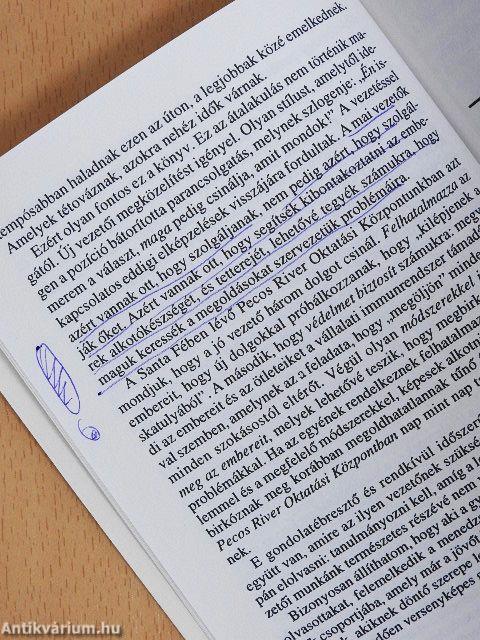 empósabban haladnak ezen az úton, a legjobbak közé emelkednek.
Amelyek tétováznak, azokra nehéz idők várnak.
Ezért olyan fontos ez a könyv. Ez az átalakulás nem történik ma-
gától. Új vezetői megközelítést igényel. Olyan stílust, amelytől ide-
gen a pozíció bátorította parancsolgatás, melynek szlogenje: „Én is-
merem a választ, maga pedig csinálja, amit mondok!” A vezetéssel
kapcsolatos eddigi elképzelések visszájára fordultak. A mai vezetők
azért vannak ott, hogy szolgáljanak, nem pedig azért, hogy szolgál-
ják őket. Azért vannak ott, hogy segítsék kibontakoztatni az embe-
rek alkotókészségét, és tetterejét, lehetővé tegyék számukra, hogy
maguk keressék a megoldásokat szervezetük problémáira.
A Santa Fében lévő Pecos River Oktatási Központunkban azt
mondjuk, hogy a jó vezető három dolgot csinál. Felhatalmazza az
embereit, hogy új dolgokkal próbálkozzanak, hogy „kilépjenek a
skatulyából”. A második, hogy védelmet biztosít számukra: mege
di az embereit és az ötleteiket a vállalati immunrendszer támadá
val szemben, amelynek az a feladata, hogy „megöljön” minde
minden szokásostól eltérőt. Végül olyan módszerekkel i
meg az embereit, melyek lehetővé teszik, hogy megbirk
problémákkal. Ha az egyének rendelkeznek felhatalma
lemmel és a megfelelő módszerekkel, képesek alkotn
birkóznak meg korábban megoldhatatlannak tűnő f
Pecos River Oktatási Központban nap mint nap t
nek.
E gondolatébresztő és rendkívül időszerű
együtt van, amire az ilyen vezetőnek szüksé
pán elolvasni: tanulmányozni kell, amíg a l
zetői munkánk természetes részévé nem
Bizonyosan állíthatom, hogy aki a gy
olvasottakat, felemelkedik a menedz
csoportjába, amely már a jövő
akiknek döntő szerepe l
dőlően versenyképes
Antikvárium.hu